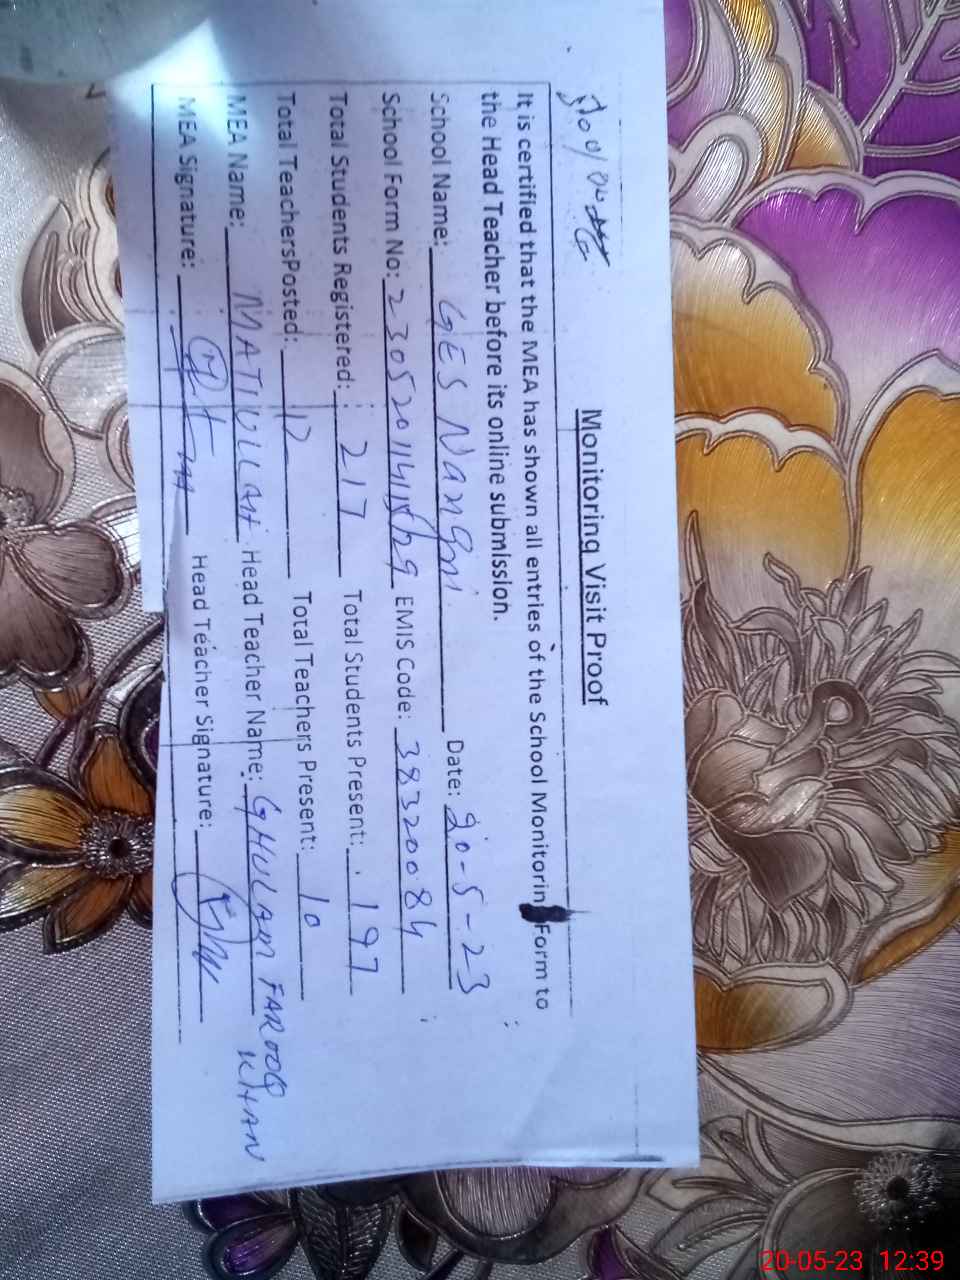 Monitoring Visit Proof
It is certified that the MEA has shown all entries of the School Monitorin Form to
the Head Teacher before its online submission.
School Name: GES Nangni Date: 20-5-23
School Form No: EMIS Code: 38320084
Total Students Registered: 217 Total Students Present: 197
Total TeachersPosted: 12 Total Teachers Present: 10
MEA Name: MATIULLAH Head Teacher Name: GHULAM FAROOQ KHAN
MEA Signature: Head Teacher Signature:
20-05-23 12:39